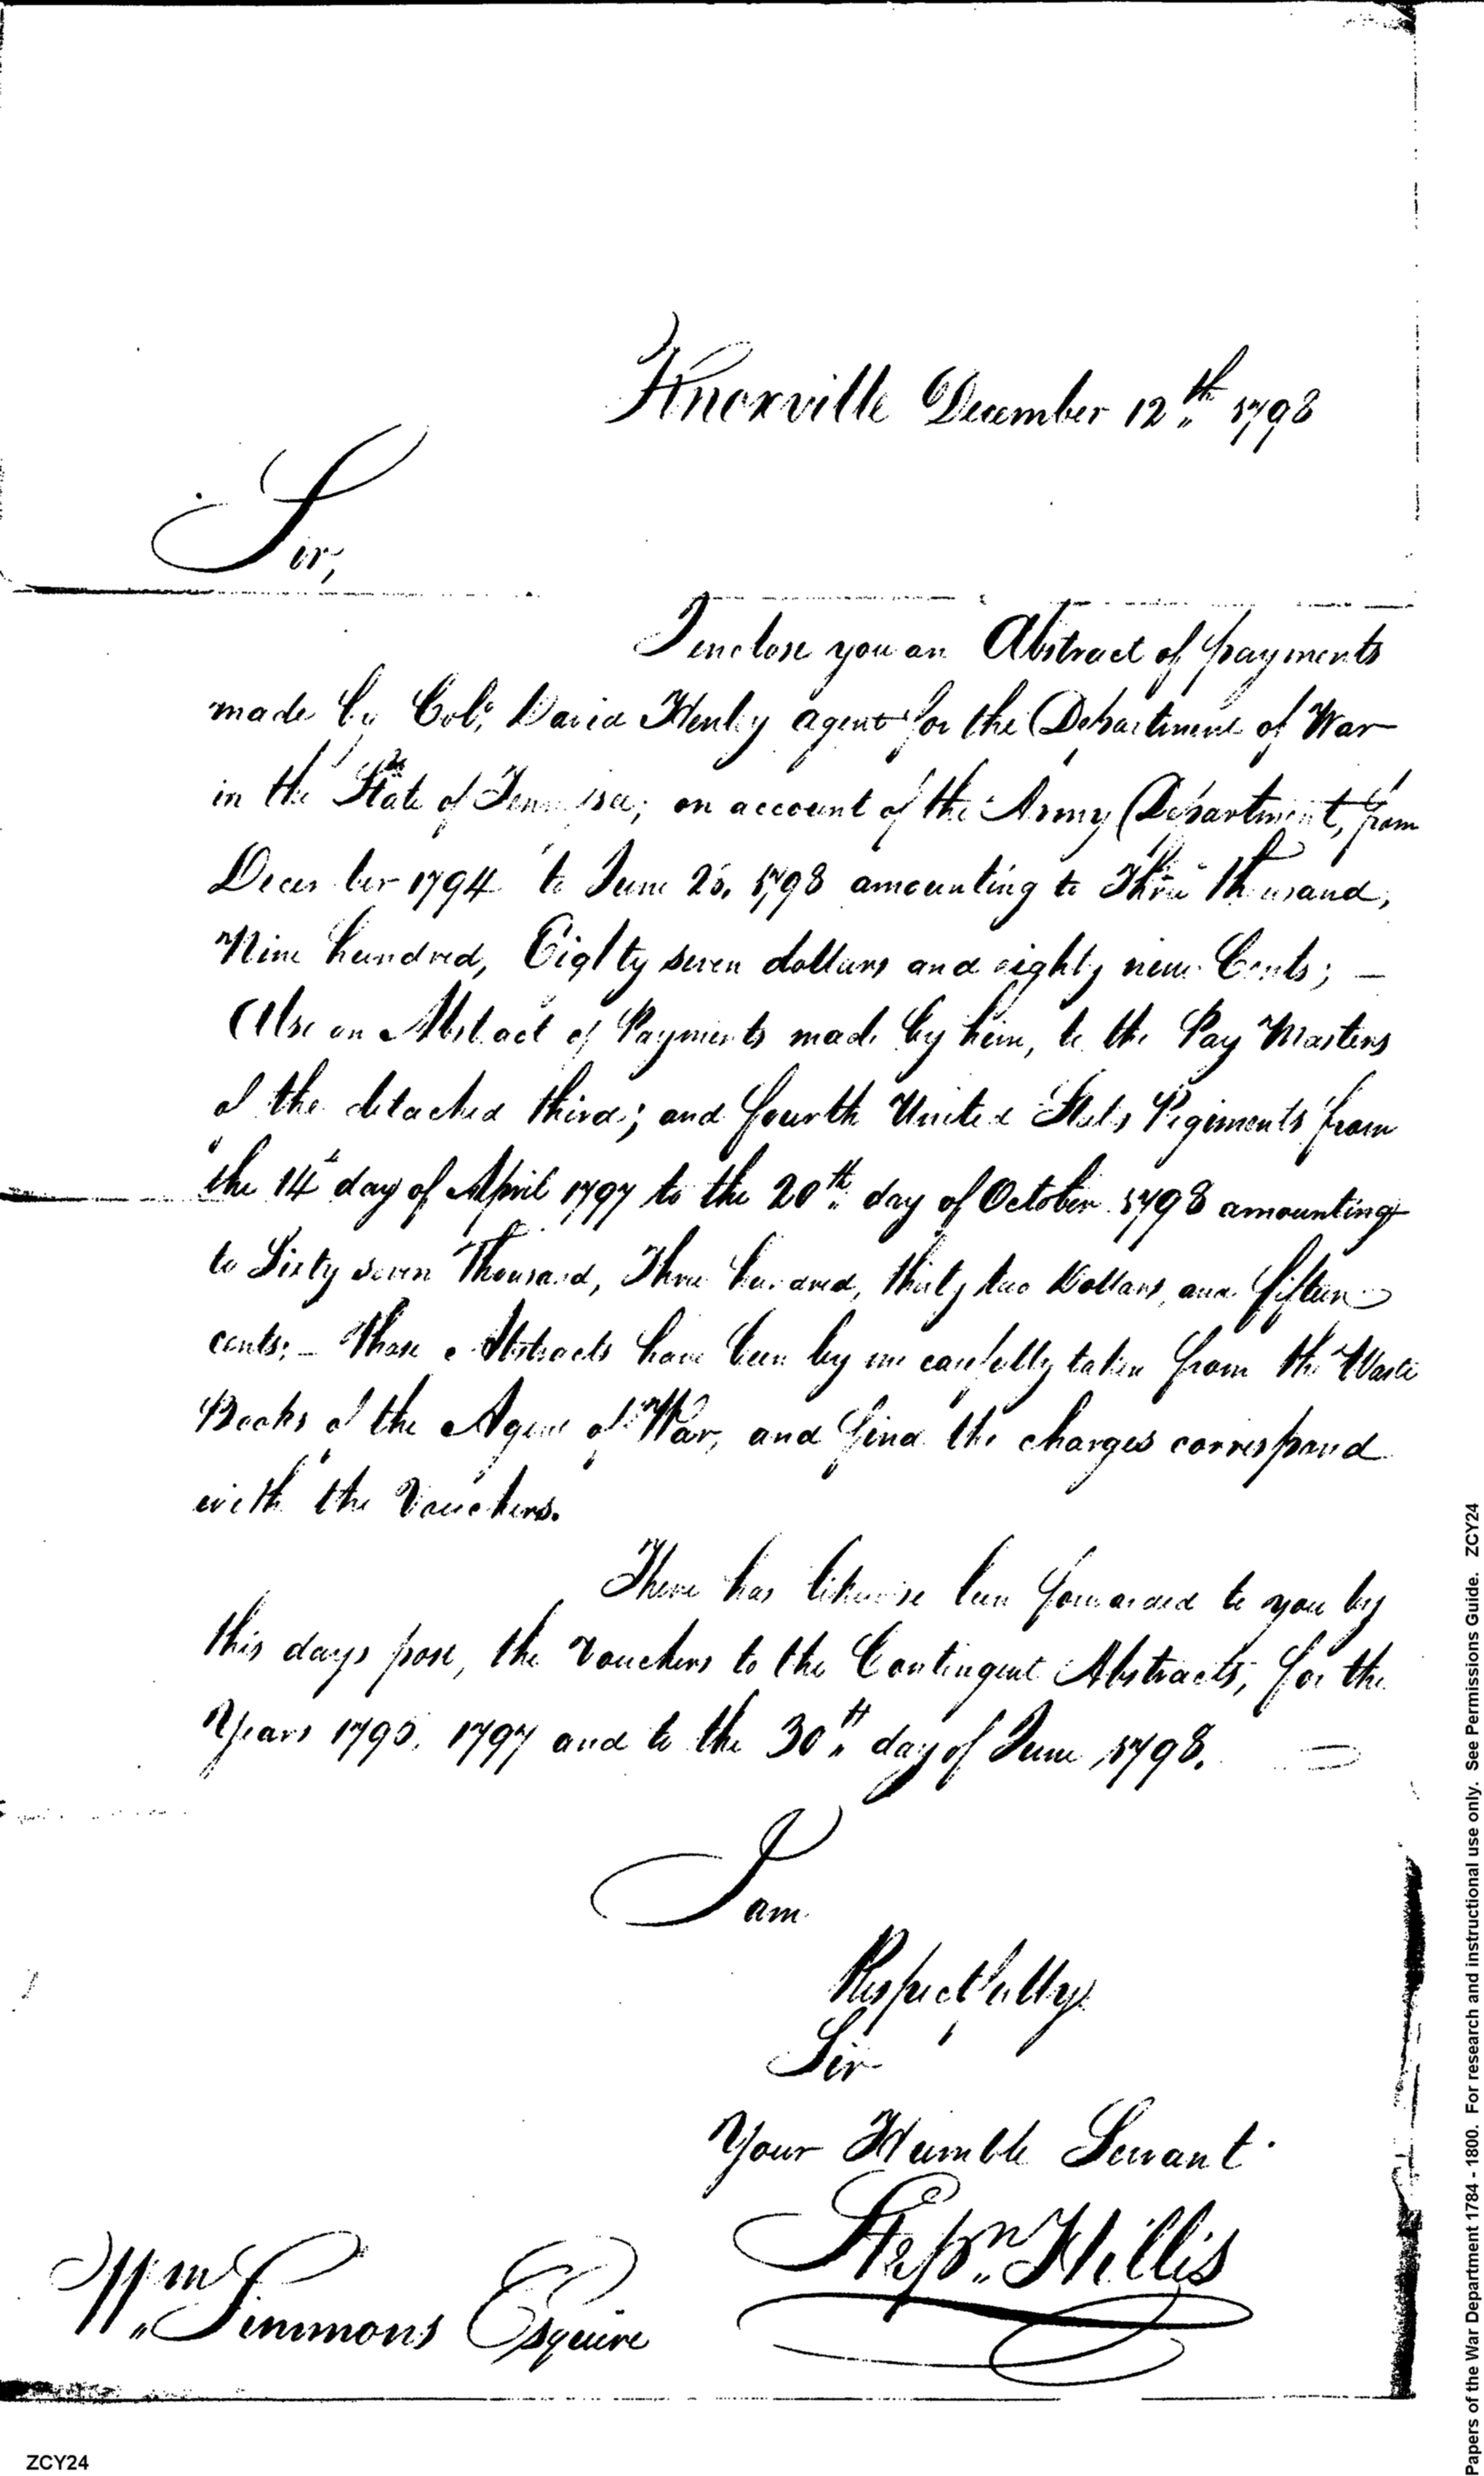 Knoxville December 12th 1798
Sir,
I enclose you an Abstract of payments
made by Colo. David Henly agent for the Department of War
in the State of Tennissee; on account of the Army Department, from
December 1794 to June 1798 amounting to Three thousand,
Nine hundred, Eighty seven dollars and eighty nine Cents; —
Also an Abstract of Payments made by him, to the Pay Masters
of the detached third; and fourth United States Regiments from
the 14th day of April 1797 to the 20th day of October 1798 amounting
to Sixty seven Thousand, Three hundred, thirty two Dollars, and fifteen
cents: – These Abstracts have been by me carefully taken from the Waste
Books of the Agent of War, and find the charges correspond
with the Vouchers.
There has likewise been forwarded to you by
this days post, the Vouchers to the Contingent Abstracts, for the
Years 1797 and to the 30th day of June 1798.
I am
Respectfully
Sir
Your Humble Servant
Stepn. Hillis
Wm. Simmons Esquire
ZCY24
Papers of the War Department 1784 - 1800. For research and instructional use only. See Permissions Guide. ZCY24